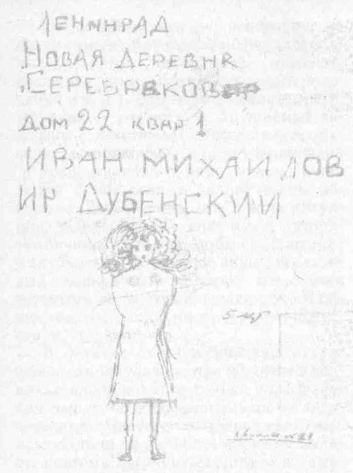 ЛЕНИНРАД
НОВАЯ ДЕРЕВНЯ
СЕРЕБРЯКОВ
ДОМ 22 КВАР 1
ИВАН МИХАИЛОВ
ИЧ ДУБЕНСКИИ